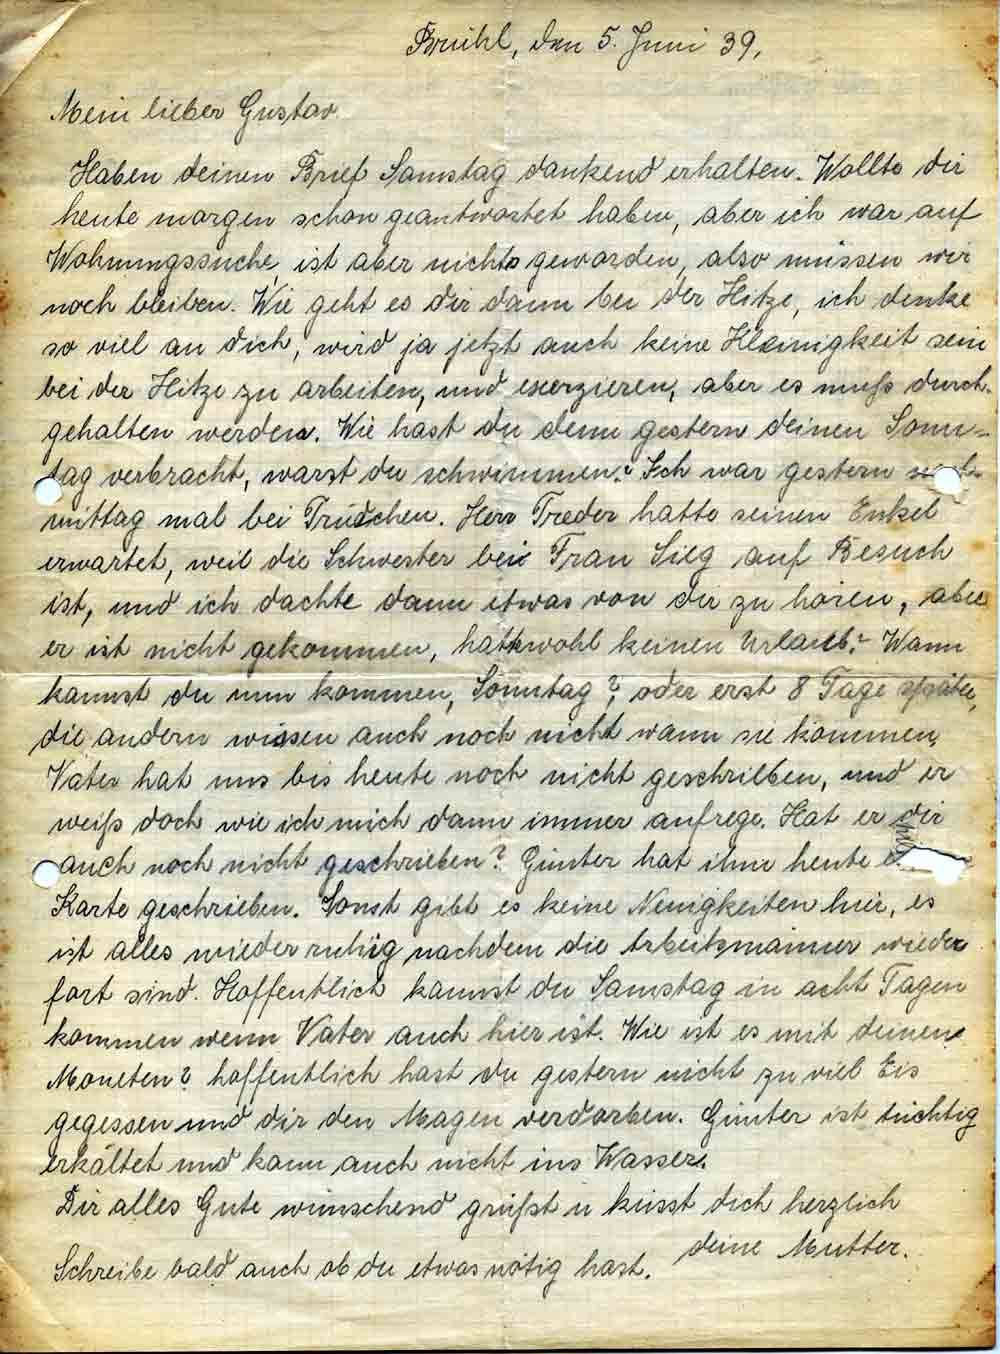 Brühl, den 5. Juni 39,
Mein lieber Gustav.
Haben deinen Brief Samstag dankend erhalten. Wollte dir
heute morgen schon geantwortet haben, aber ich war auf
Wohnungssuche, ist aber nichts geworden, also müssen wir
noch bleiben. Wie geht es dir dann bei der Hitze, ich denke
so viel an dich, wird ja jetzt auch keine Kleinigkeit sein
bei der Hitze zu arbeiten, und exerzieren, aber es muß durch-
gehalten werden. Wie hast du denn gestern deinen Sonn-
tag verbracht, warst du schwimmen? Ich war gestern
mittag mal bei Trüdchen. Herr Treder hatte seinen Enkel
erwartet, weil die Schwester bei Frau Sieg auf Besuch
ist, und ich dachte dann etwas von dir zu hören, aber
er ist nicht gekommen, hat wohl keinen Urlaub? Wann
kannst du nun kommen, Sonntag?, oder erst 8 Tage später,
die andern wissen auch noch nicht wann sie kommen,
Vater hat uns bis heute noch nicht geschrieben, und er
weiß doch wie ich mich dann immer aufrege. Hat er dir
auch noch nicht geschrieben? Günter hat ihm heute
Karte geschrieben. Sonst gibt es keine Neuigkeiten hier, es
ist alles wieder ruhig nachdem die Arbeitsmänner wieder
fort sind. Hoffentlich kannst du Samstag in acht Tagen
kommen wenn Vater auch hier ist. Wie ist es mit deinen
Moneten? hoffentlich hast du gestern nicht zu viel Eis
gegessen und dir den Magen verdorben. Günter ist tüchtig
erkältet und kann auch nicht ins Wasser.
Dir alles Gute wünschend grüßt u küsst dich herzlich
deine Mutter.
Schreibe bald auch ob du etwas nötig hast.